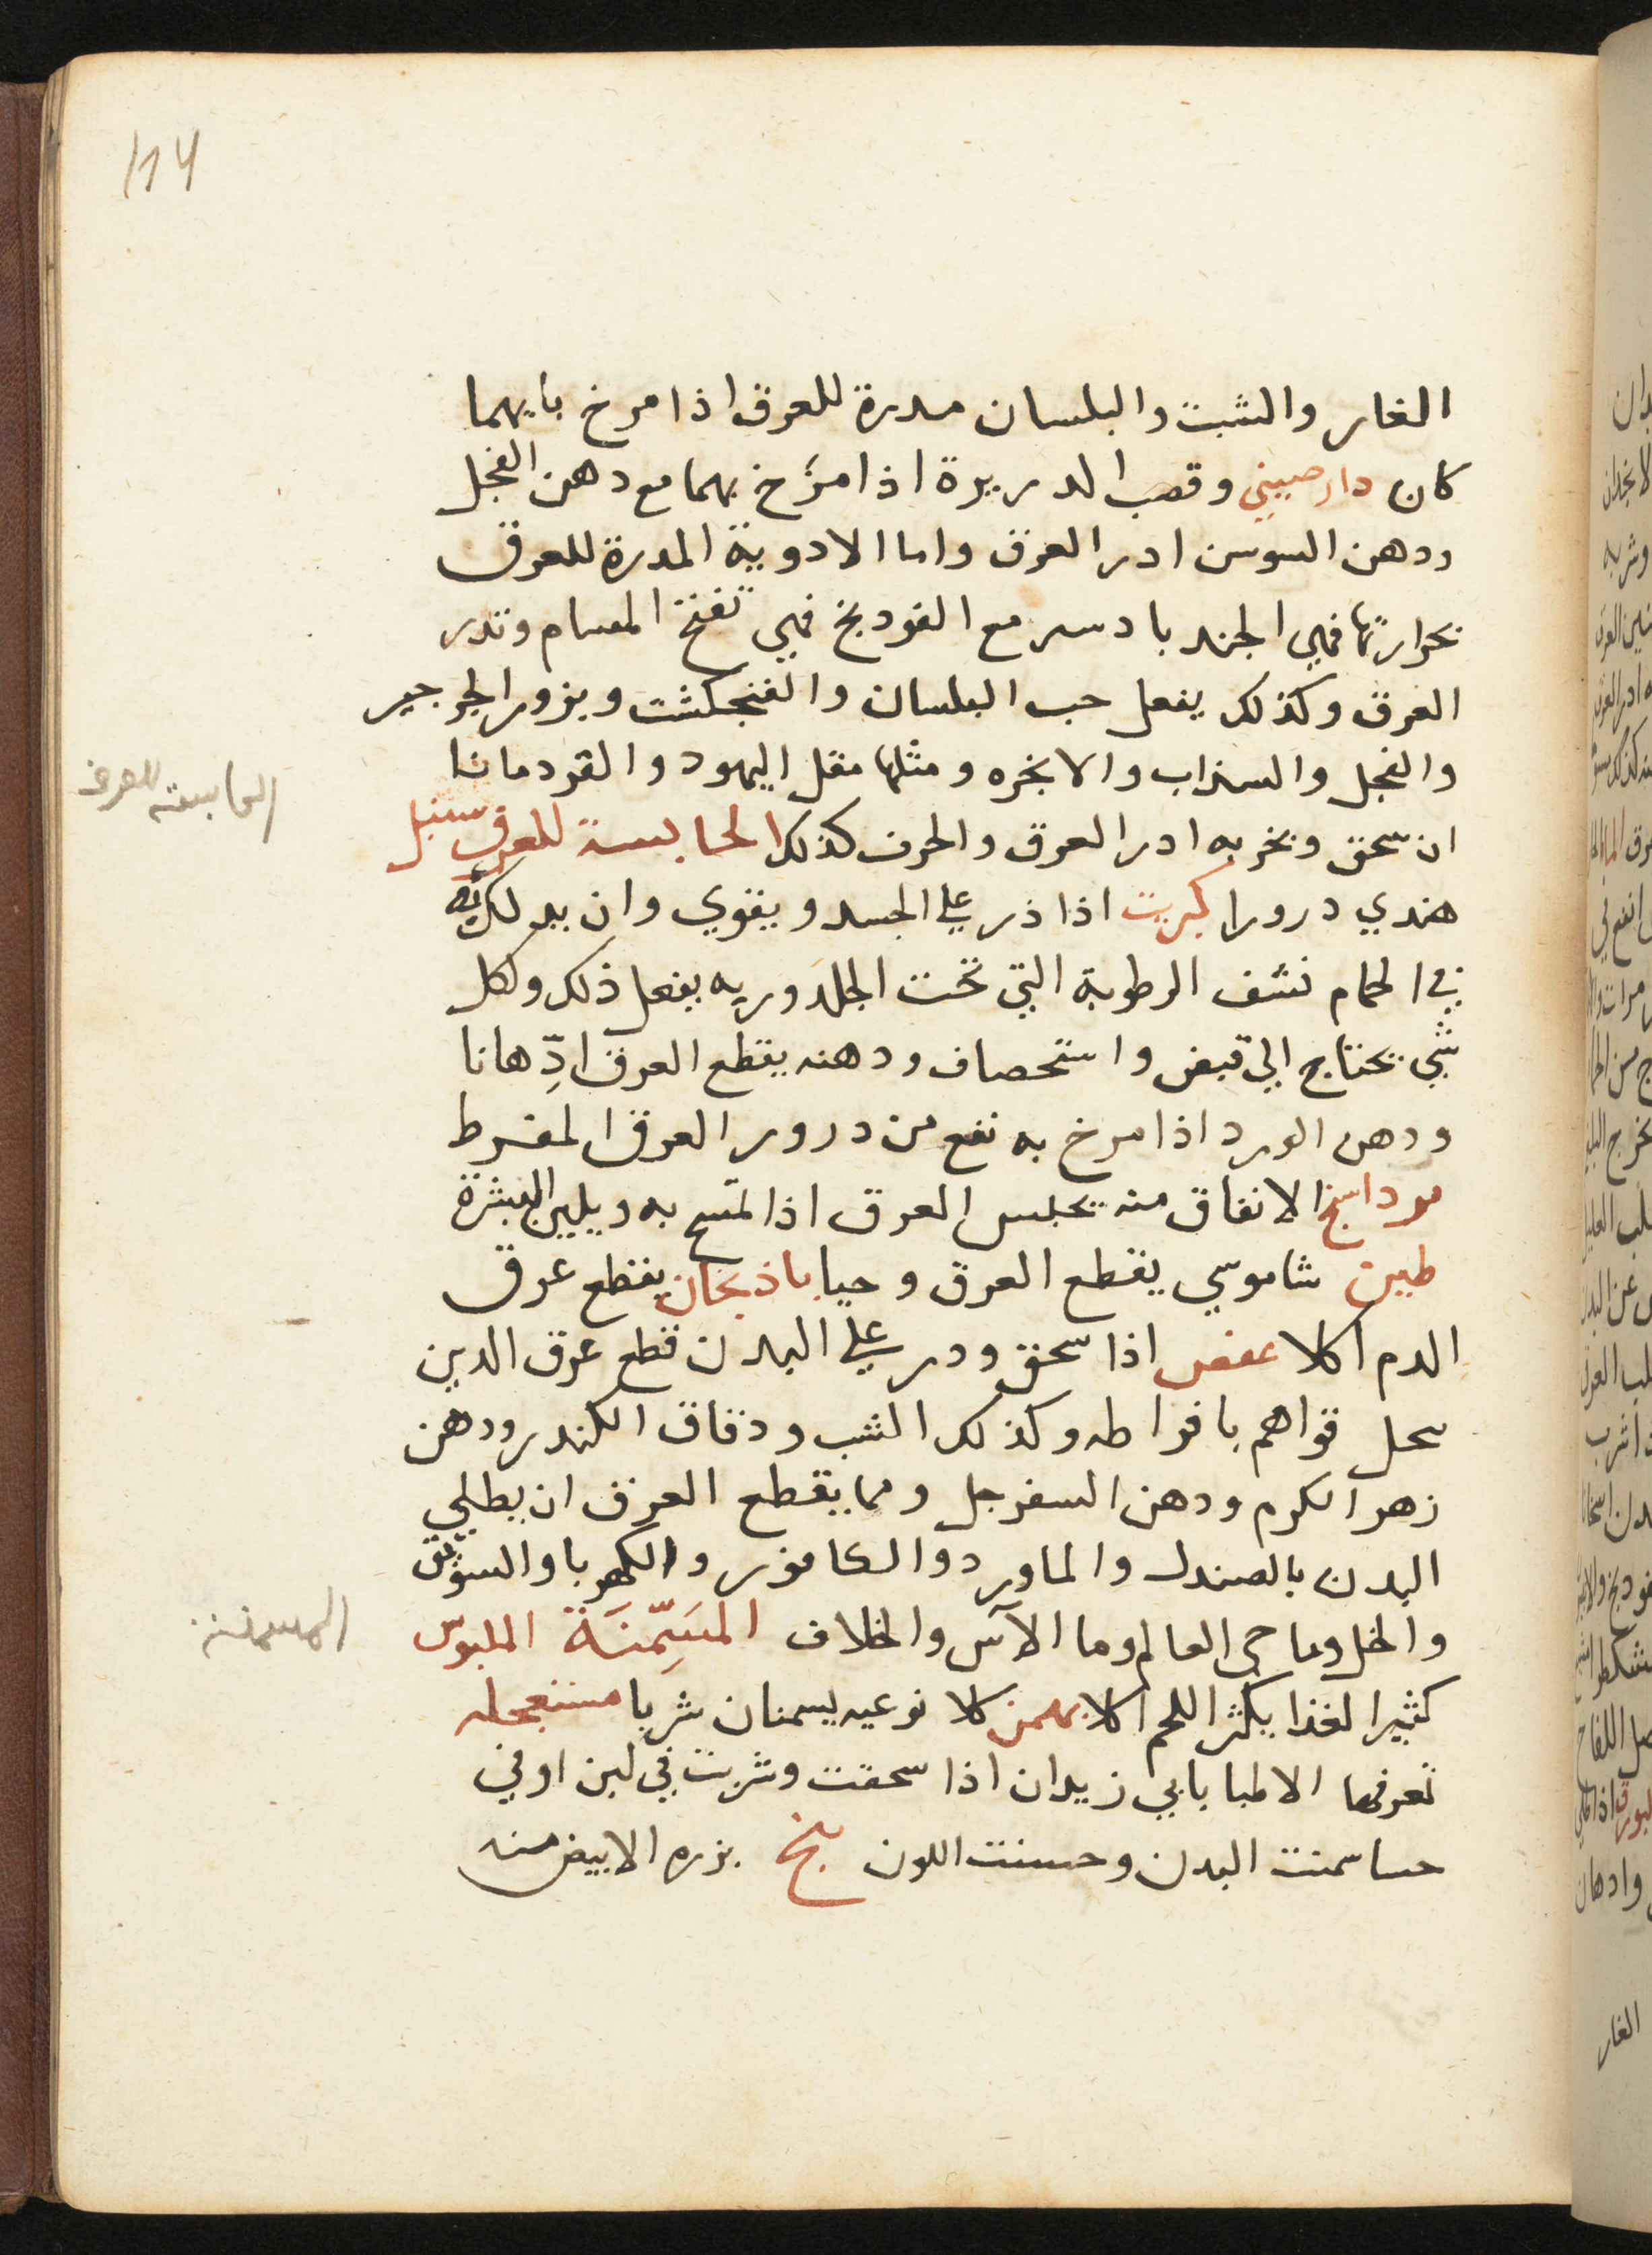 114
الغار والشبت والبلسان مدرة للعرق اذا مرخ بايهما
كان دارصيني وقصب الدريرة اذا مرخ بهما مع دهن الفجل
ودهن السوسن ادر العرق واما الادوية المدرة للعرق
بحرارتها فهي الجندبادستر مع الفودبخ فهي تفتح المسام وتدر
العرق وكذلك يفعل حب البلسان والفنجكشت وبزور الجرجير
والفجل والسذاب والانجره ومثلها مقل اليهود والقردمانا
ان سحق وبخر به ادر العرق والحرف كذلك الحابسة للعرق سنبل
الحابسة للعرق
هندي درورا كبريت اذا ذر على الجسد ويقوي وان بدلك به
في الحمام نشف الرطوبة التي تحت الجلد وربه يفعل ذلك ولكل
شي يحتاج الي قبض واستحصاف ودهنه يقطع العرق ادّهانا
ودهن الورد اذا مرخ به نفع من درور العرق المفرط
مرداسخ الانفاق منه يحبس العرق اذا لتمسح به ويلين البشرة
طين شاموسي يقطع العرق وحيا باذنجان يقطع عرق
الدم اكلا عفص اذا سحق ودر على البدن قطع عرق الدين
سحل قواهم بافواطه وكذلك الشب ودقاق الكندر ودهن
زهر الكرم ودهن السفرجل ومما يقطع العرق ان يطلي
البدن بالصندل والماورد والكافور والكهربا والسويق
والخل وما حي العالم وما الآس والخلاف المسَمِّنَة الملبوس
المسمنة
كثير الغذا يكثر اللحم اكلا بهمن كلا نوعيه يسمنان شربا مستعجله
تعرفها الاطبا بابي زيدان اذا سحقت وشربت في لبن او في
حسا سمنت البدن وحسنت اللون بنج بزره الابيض منه